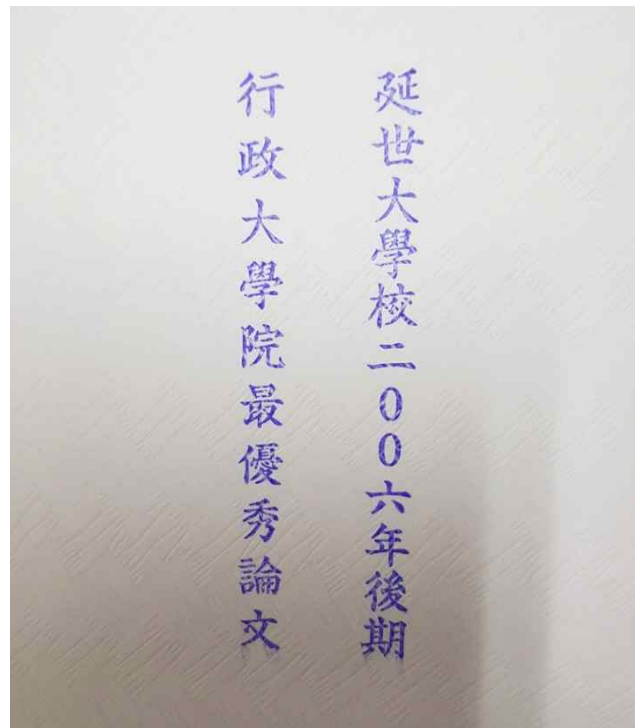 延世大學校二00六年後期
行政大學院最優秀論文